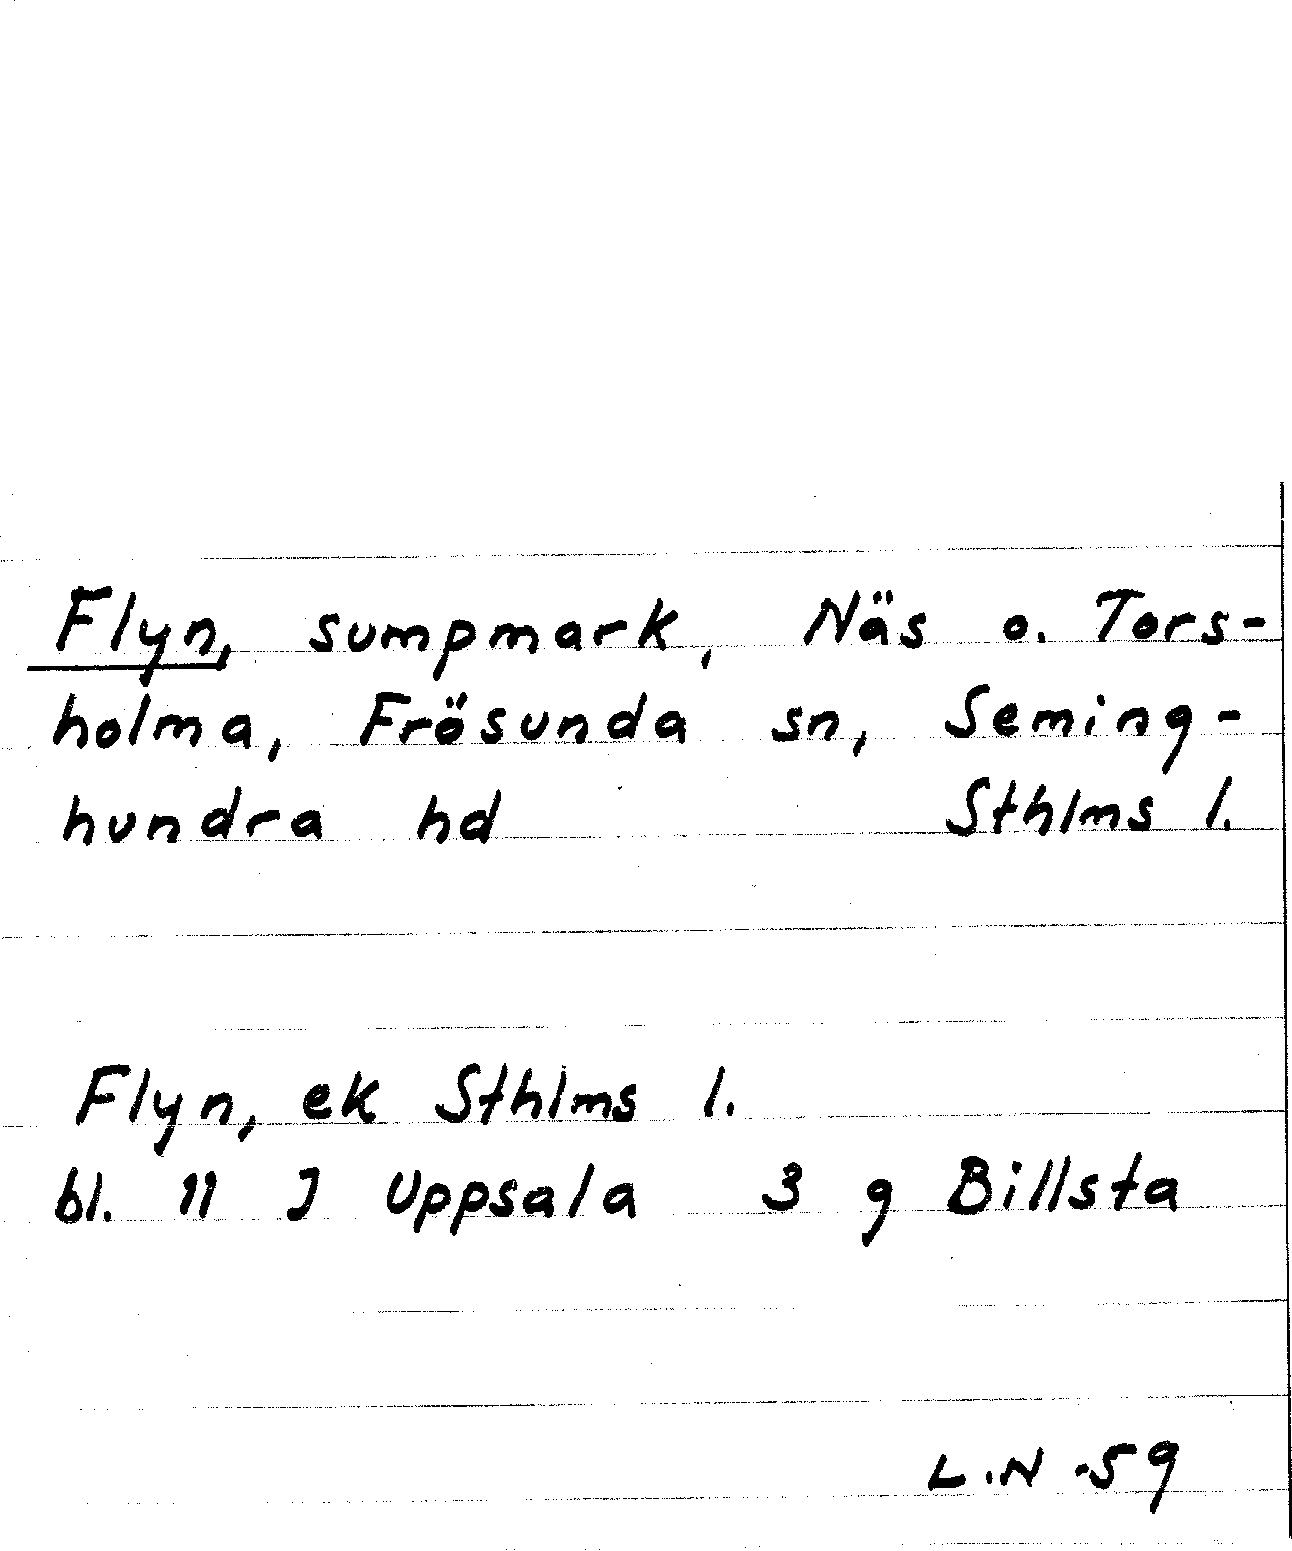 Flyn, sumpmark, Näs o. Tors-
holma, Frösunda sn, Seming-
hundra hd Sthlms l.
Flyn, ek Sthlms l.
bl. 11 J Uppsala 3 g Billsta
L.N -59